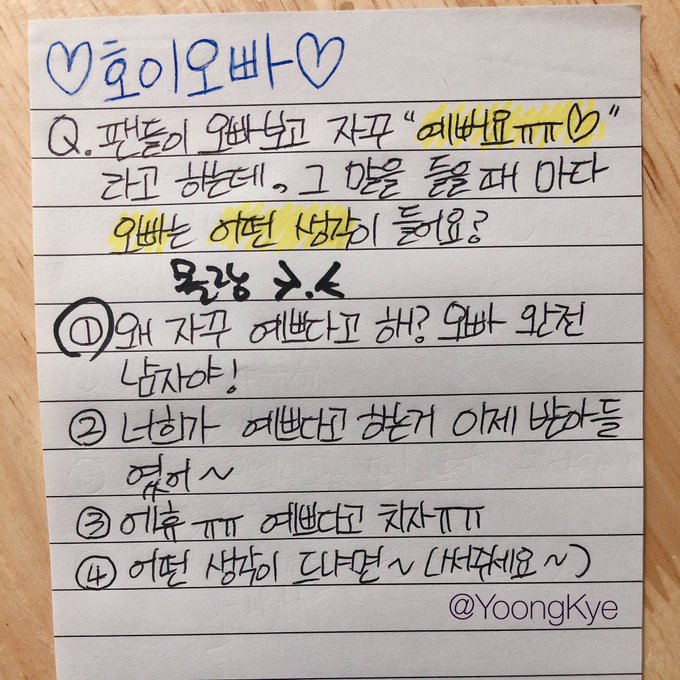 ♡호이오빠♡
Q. 팬들이 오빠보고 자꾸 "예뻐요ㅠㅠ♡"
라고 하는데, 그 말을 들을 때 마다
오빠는 어떤 생각이 들어요?
몰라 >.<
① 왜 자꾸 예쁘다고 해? 오빠 완전
남자야!
② 너희가 예쁘다고 하는거 이제 받아들
였어~
③ 에휴 ㅠㅠ 예쁘다고 치자ㅠㅠ
④ 어떤 생각이 드냐면~ (써주세요~)
@YoongKye